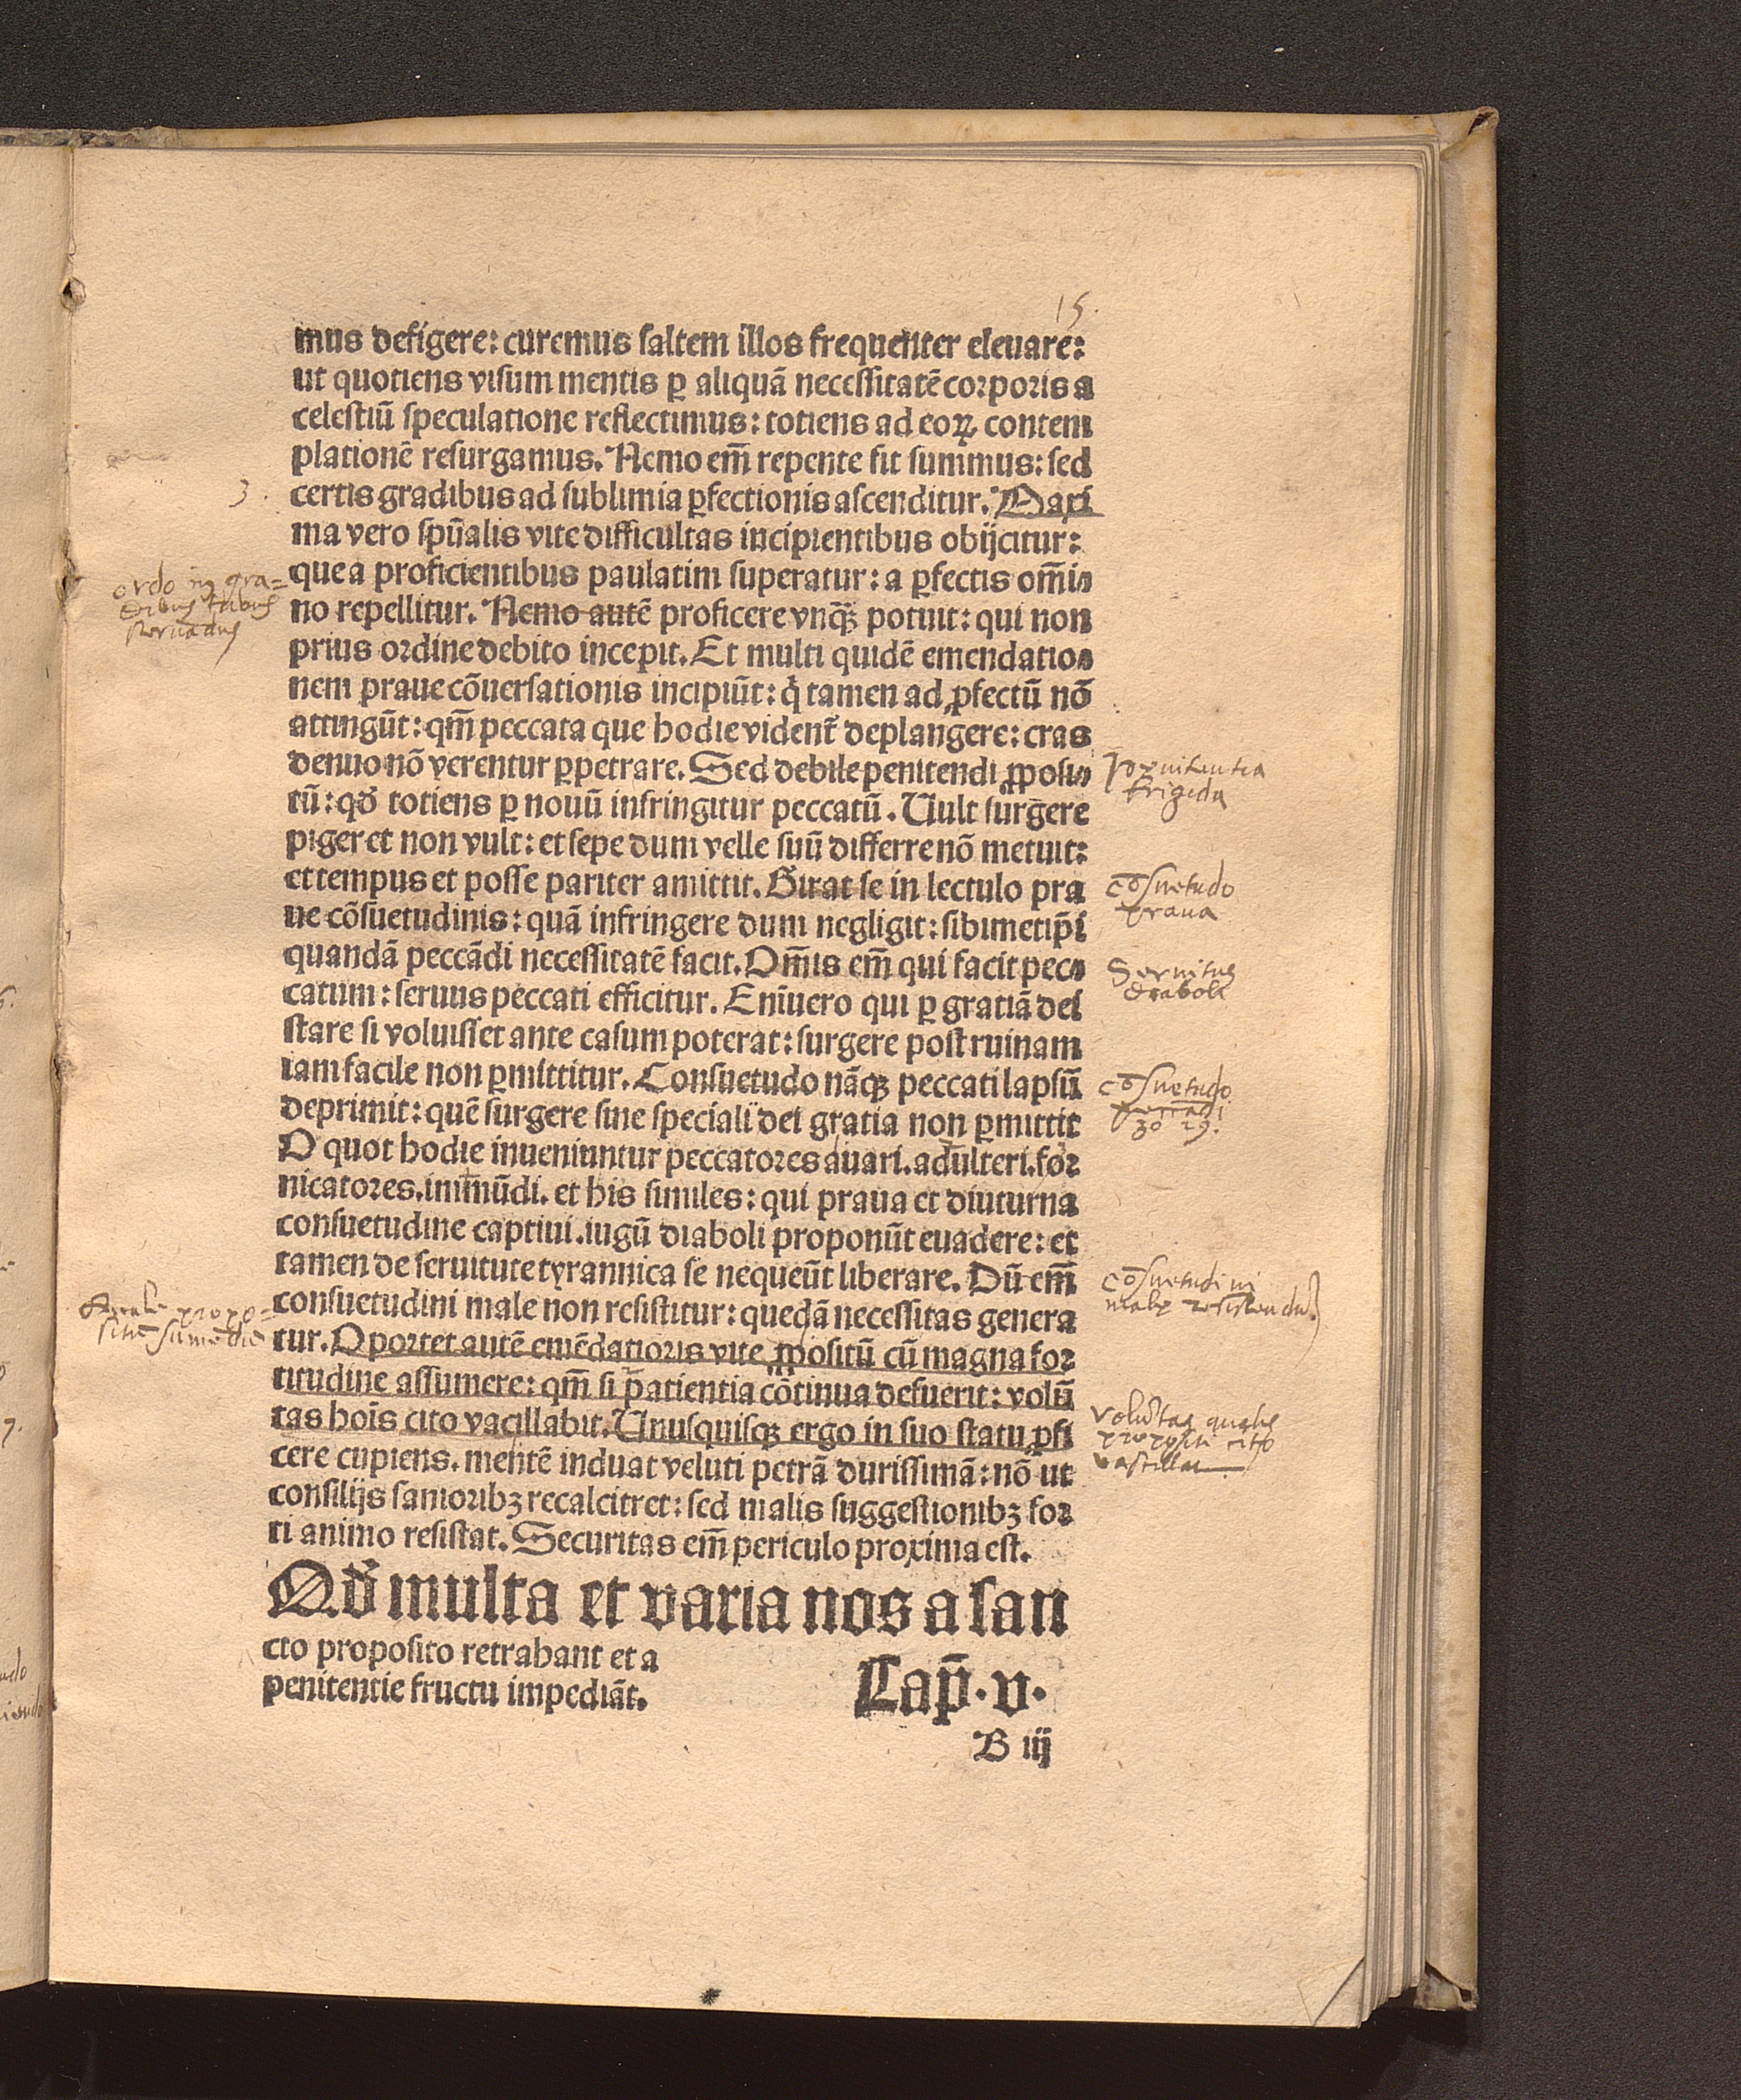 15.
mus defigere: curemus saltem illos frequenter eleuare:
ut quotiens visum mentis ꝑ aliquā necessitatē corporis a
celestiū speculatione reflectimus: totiens ad eoꝝ contem
plationē resurgamus. Nemo em̄ repente fit summus: sed
3. certis gradibus ad sublimia ꝑfectionis ascenditur. Maxi
ma vero spūalis vite difficultas incipientibus obijcitur:
que a proficientibus paulatim superatur: a ꝑfectis om̄i⸗
no repellitur. Nemo autē proficere vnqꝫ̄ potuit: qui non
prius ordine debito incepit. Et multi quidē emendatio⸗
nem praue cōuersationis incipiūt: q̇ tamen ad ꝓfectū nō
attingūt: qm̄ peccata que hodie vident᷑ deplangere: cras
denuo nō verentur ꝑpetrare. Sed debile penitendi ꝓposi⸗
tū: qđ totiens ꝑ nouū infringitur peccatū. Uult surgere
piger et non vult: et sepe dum velle suū differre nō metuit:
et tempus et posse pariter amittit. Girat se in lectulo pra
ue cōsuetudinis: quā infringere dum negligit: sibimetip̄i
quandā peccādi necessitatē facit. Om̄is em̄ qui facit pec⸗
catum: seruus peccati efficitur. Enīuero qui ꝑ gratiā dei
stare si voluisset ante casum poterat: surgere post ruinam
iam facile non ꝑmittitur. Consuetudo nāqꝫ peccati lapsū
deprimit: quē surgere sine speciali dei gratia non ꝑmittit
O quot hodie inueniuntur peccatores auari. adulteri. for
nicatores. inmūdi. et his similes: qui praua et diuturna
consuetudine captiui. iugū diaboli proponūt euadere: et
tamen de seruitute tyrannica se nequeūt liberare. Dū em̄
consuetudini male non resistitur: quedā necessitas genera
tur. Oportet autē emēdatioris vite ꝓpositū cū magna for
titudine assumere: qm̄ si patientia cōtinua defuerit: volū
tas hoīs cito vacillabit. Unusquisqꝫ ergo in suo statu ꝓfi
cere cupiens. mentē induat veluti petrā durissimā: nō ut
consilijs sanioribꝫ recalcitret: sed malis suggestionibꝫ for
ti animo resistat. Securitas em̄ periculo proxima est.
Qđ multa et varia nos a san
cto proposito retrahant et a
penitentie fructu impediāt.
Cap̄. v.
B iij
ordo in gra=
dibus
seruadus
propo=
sitū sumēdū
Poenitentia
frigida
cōsuetudo
praua
Seruitus
diaboli
cōsuetudo
peccati
cōsuetudini
male resistendū
volūtas
propositi cito
vacillat